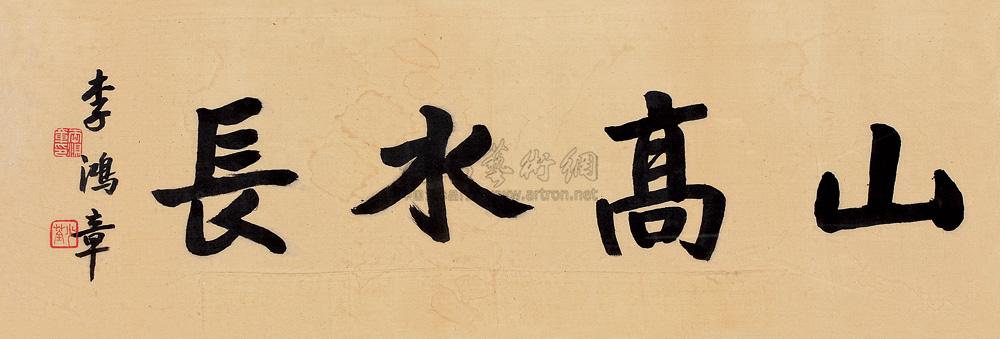 山髙水長
李鴻章
藝術網
www.artron.net